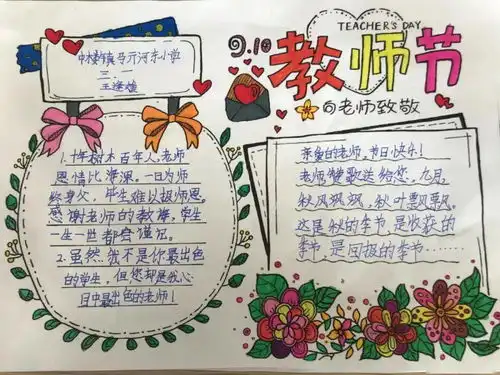 中楼镇马亓河东小学
三.一
TEACHER'S DAY
9.10
教师节
向老师致敬
1.十年树木百年人,老师
恩情比海深,一日为师
终身父,毕生难以报师恩。
感谢老师的教诲,学生
一生一世都会谨记。
2.虽然,我不是你最出色
的学生,但您却是我心
目中最出色的老师!
亲爱的老师,节日快乐!
老师赞歌送给您,九月,
秋风飒飒,秋叶飘飘。
这是秋的季节,是收获的
季节,是回报的季节……